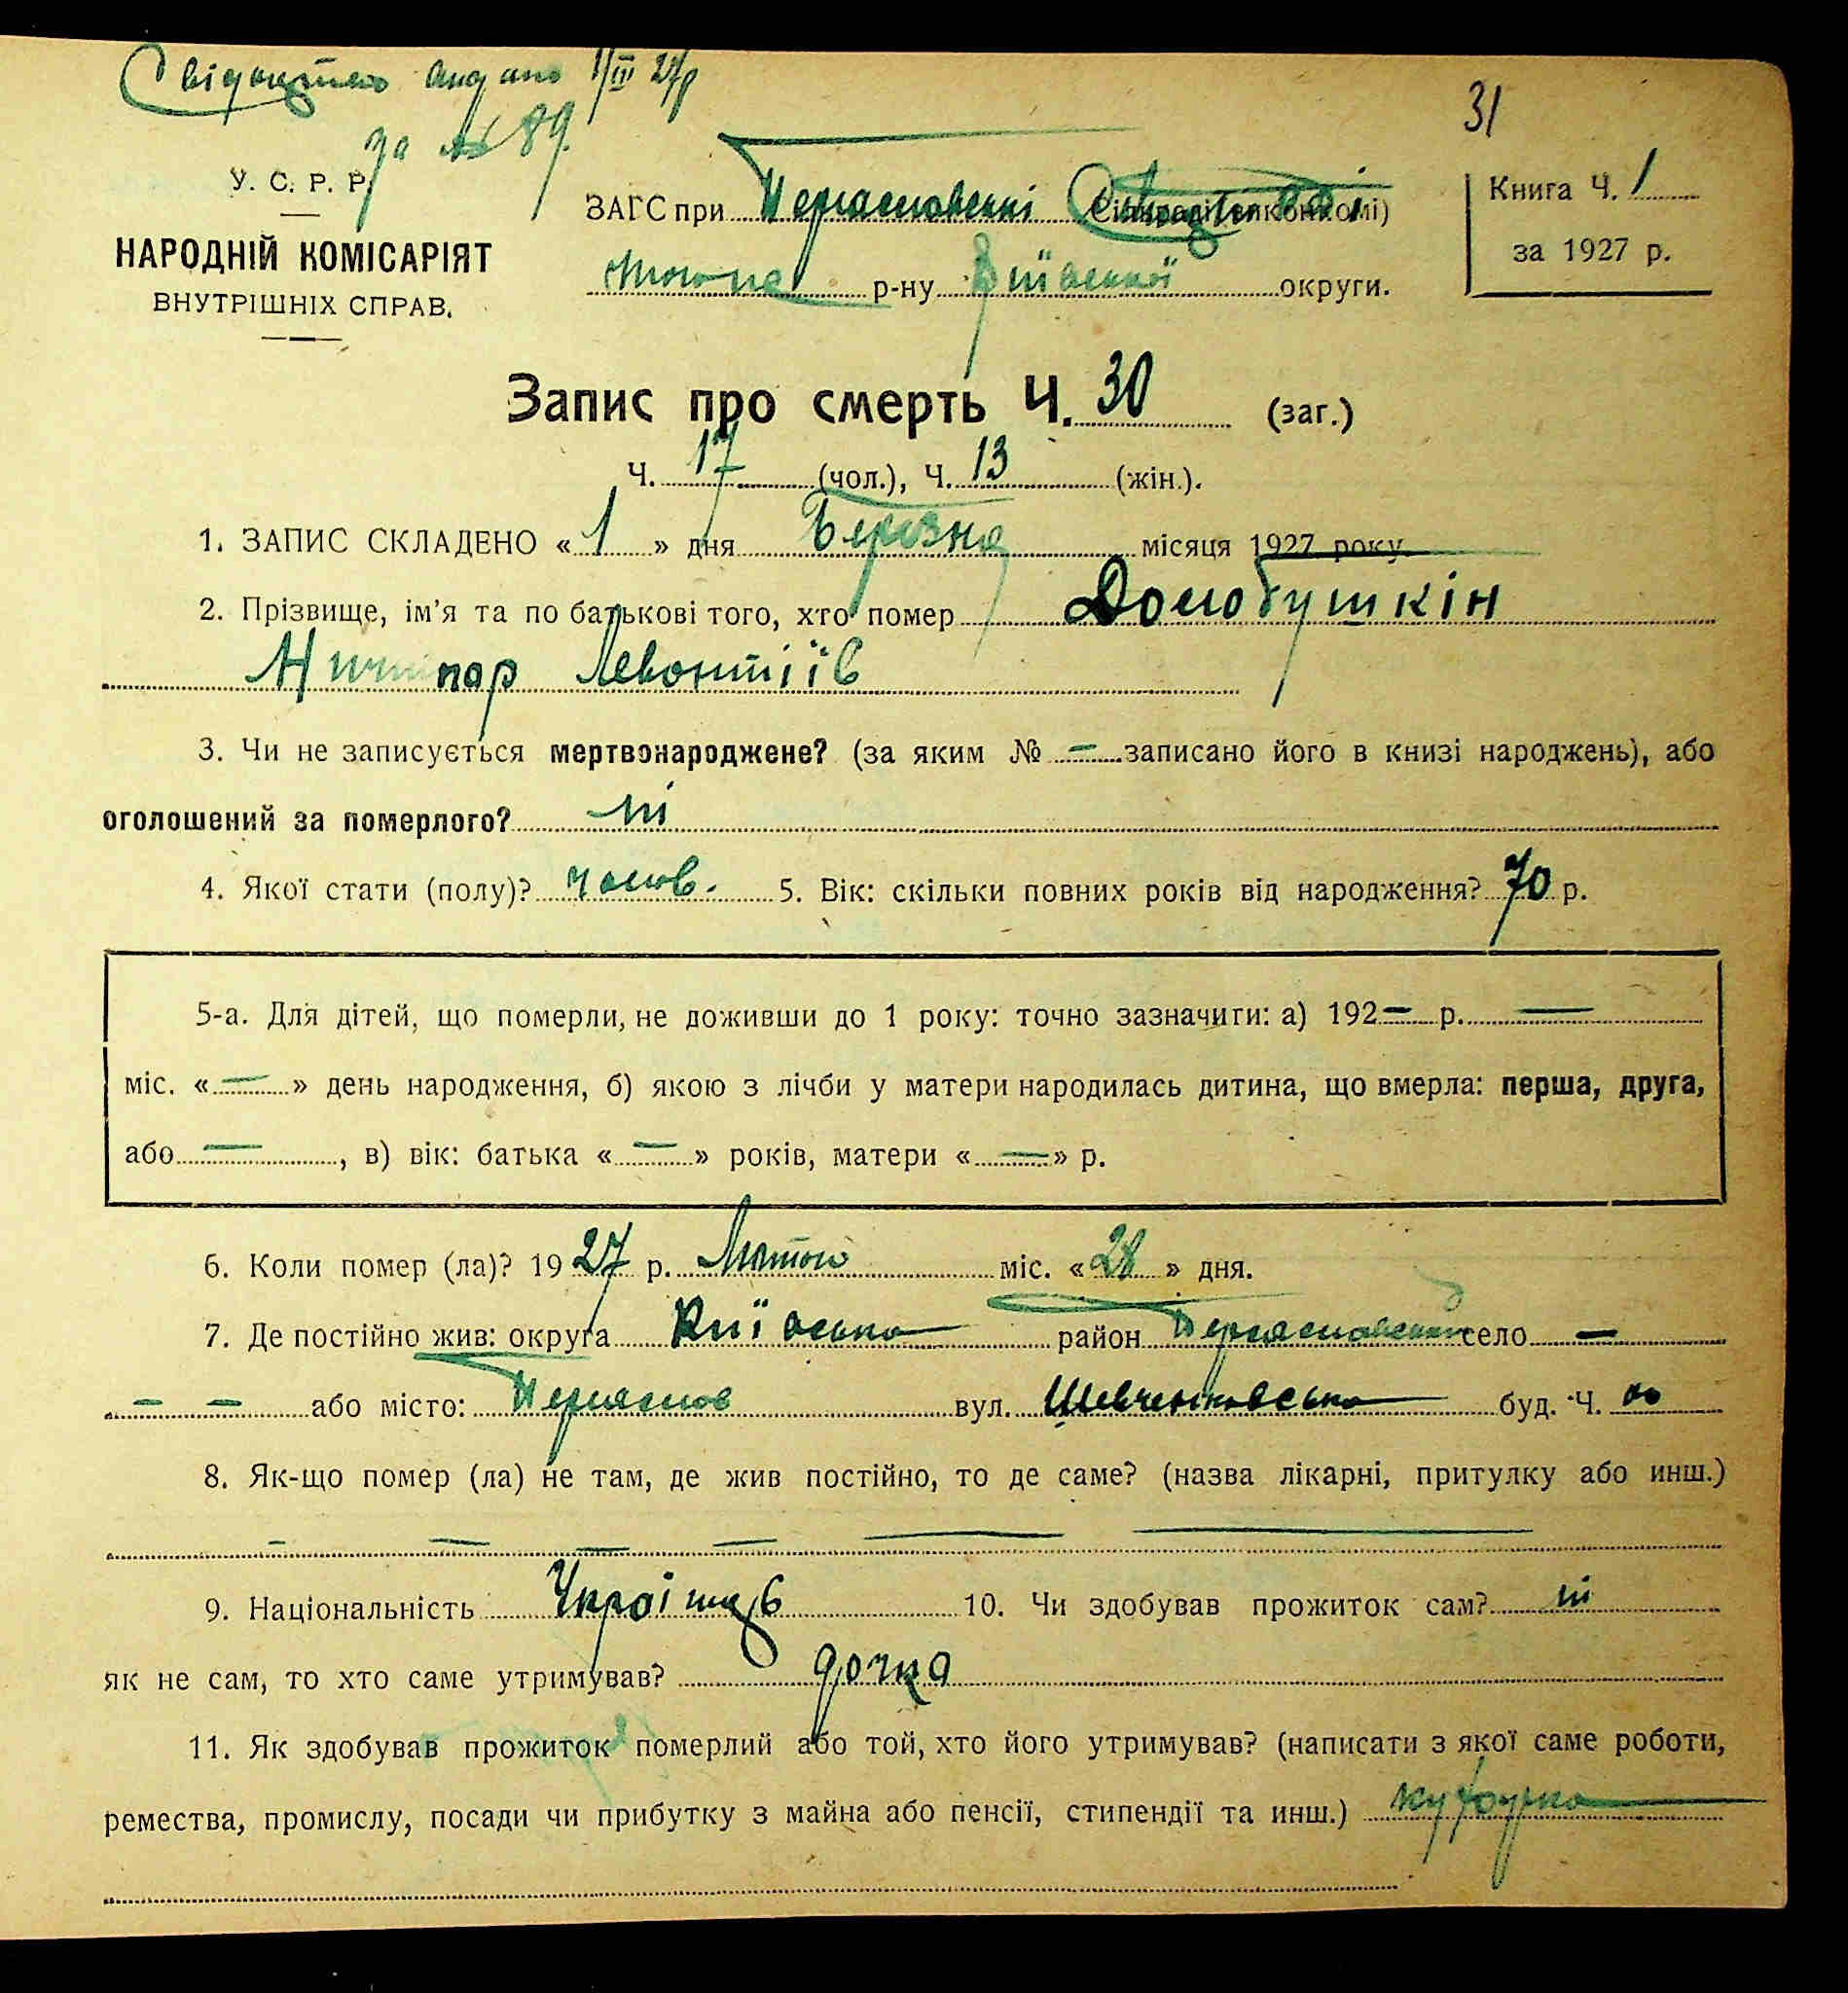 Свідоцтво видано 1/III 27 р
за № 89.
31
У. С. Р. Р.
НАРОДНІЙ КОМІСАРІЯТ
ВНУТРІШНІХ СПРАВ.
ЗАГС при Переяславській Сільраді(виконкомі)
р-ну Київської округи.
Книга Ч. 1
за 1927 р.
Запис про смерть Ч. 30 (заг.)
Ч. 17 (чол.), Ч. 13 (жін.).
1. ЗАПИС СКЛАДЕНО « 1 » дня Березня місяця 1927 року.
2. Прізвище, ім'я та по батькові того, хто помер
Ничипор Левонтіїв
3. Чи не записується мертвонароджене? (за яким № — записано його в книзі народжень), або
оголошений за померлого? ні
4. Якої стати (полу)? чолов. 5. Вік: скільки повних років від народження? 70 р.
5-а. Для дітей, що померли, не доживши до 1 року: точно зазначити: а) 192— р. —
міс. « — » день народження, б) якою з лічби у матери народилась дитина, що вмерла: перша, друга,
або —, в) вік: батька « — » років, матери « — » р.
6. Коли помер (ла)? 1927 р. Лютого міс. « 28 » дня.
7. Де постійно жив: округа Київська район Переяславський село —
— — або місто: Переяслов вул. Шевченковська буд. Ч.
8. Як-що помер (ла) не там, де жив постійно, то де саме? (назва лікарні, притулку або инш.)
— — — — — —
9. Національність Українець 10. Чи здобував прожиток сам? ні
як не сам, то хто саме утримував? дочка
11. Як здобував прожиток померлий або той, хто його утримував? (написати з якої саме роботи,
ремества, промислу, посади чи прибутку з майна або пенсії, стипендії та инш.)